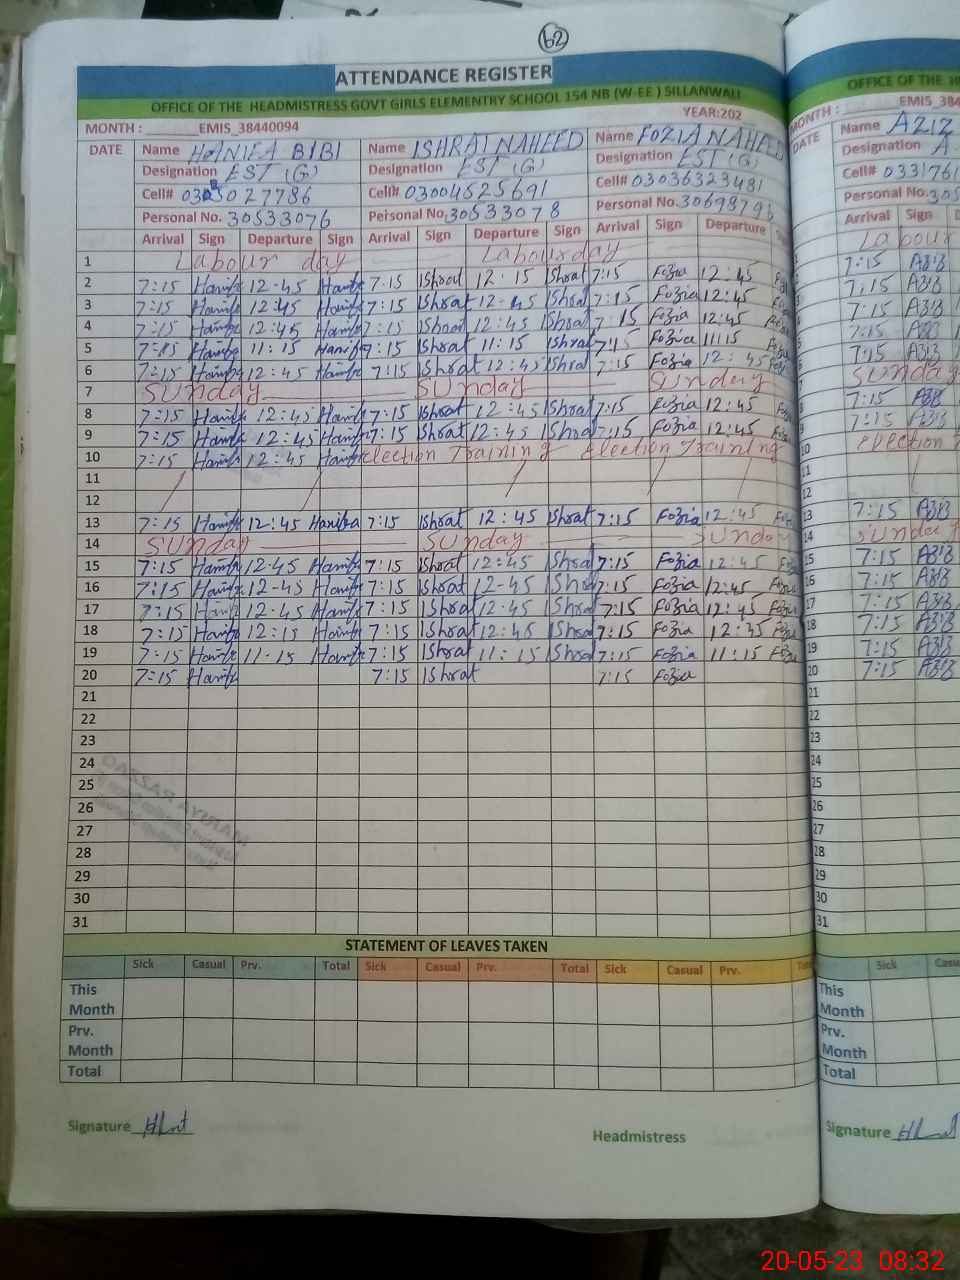 62
ATTENDANCE REGISTER
OFFICE OF THE HEADMISTRESS GOVT GIRLS ELEMENTRY SCHOOL 154 NB (W-EE ) SILLANWALI
MONTH : EMIS_38440094 YEAR:202
DATE Name HANIFA BIBI Name ISHRAT NAHEED Name FOZIA NAHEED
Designation EST (G) Designation EST (G) Designation EST (G)
Cell# 0305027786 Cell# 03004525691 Cell# 03036323481
Personal No. 30533076 Personal No. 30533078 Personal No.
Arrival Sign Departure Sign Arrival Sign Departure Sign Arrival Sign Departure
1 Labour day Labour day
2 7:15 Hanifa 12-45 Hanifa 7.15 Ishrat 12 15 Ishrat 7:15 Fozia 12:45
3 7:15 Hanifa 12:45 Hanifa 7:15 Ishrat 12-45 Ishrat 7:15 Fozia 12:45
4 7:15 Hanifa 12:45 Hanifa 7:15 Ishrat 12:45 Ishrat 7:15 Fozia 12:45
5 7:15 Hanifa 11:15 Hanifa 7:15 Ishrat 11:15 Ishrat 7:15 Fozia 11:15
6 7:15 Hanifa 12:45 Hanifa 7:15 Ishrat 12:45 Ishrat 7:15 Fozia 12:45
7 Sunday Sunday Sunday
8 7:15 Hanifa 12:45 Hanifa 7:15 Ishrat 12:45 Ishrat 7:15 Fozia 12:45
9 7:15 Hanifa 12:45 Hanifa 7:15 Ishrat 12:45 Ishrat 7:15 Fozia 12:45
10 7:15 Hanifa 12:45 Hanifa election Training Election Training
11
12
13 7:15 Hanifa 12:45 Hanifa 7:15 Ishrat 12:45 Ishrat 7:15 Fozia 12:45
14 Sunday Sunday Sunda
15 7:15 Hanifa 12-45 Hanifa 7:15 Ishrat 12:45 Ishrat 7:15 Fozia 12:45
16 7:15 Hanifa 12-45 Hanifa 7:15 Ishrat 12-45 Ishrat 7:15 Fozia 12:45
17 7:15 Hanifa 12-45 Hanifa 7:15 Ishrat 12:45 Ishrat 7:15 Fozia 12:45
18 7:15 Hanifa 12:15 Hanifa 7:15 Ishrat 12:45 Ishrat 7:15 Fozia 12:45
19 7:15 Hanifa 11-15 Hanifa 7:15 Ishrat 11:15 Ishrat 7:15 Fozia 11:15
20 7:15 Hanifa 7:15 Ishrat 7:15 Fozia
21
22
23
24
25
26
27
28
29
30
31
STATEMENT OF LEAVES TAKEN
Sick Casual Prv. Total Sick Casual Prv. Total Sick Casual Prv.
This Month
Prv. Month
Total
Signature Headmistress
OFFICE OF THE
MONTH : EMIS_384
DATE Name AZIZ
Designation
Cell# 0331761
Personal No. 305
Arrival Sign
Labour
7:15
7:15
7:15
7:15
7:15
Sunda
7:15
7:15
10 election
11
12
13 7:15
14 Sunda
15 7:15
16 7:15
17 7:15
18 7:15
19 7:15
20 7:15
21
22
23
24
25
26
27
28
29
30
31
Sick
This Month
Prv. Month
Total
Signature
20-05-23 08:32